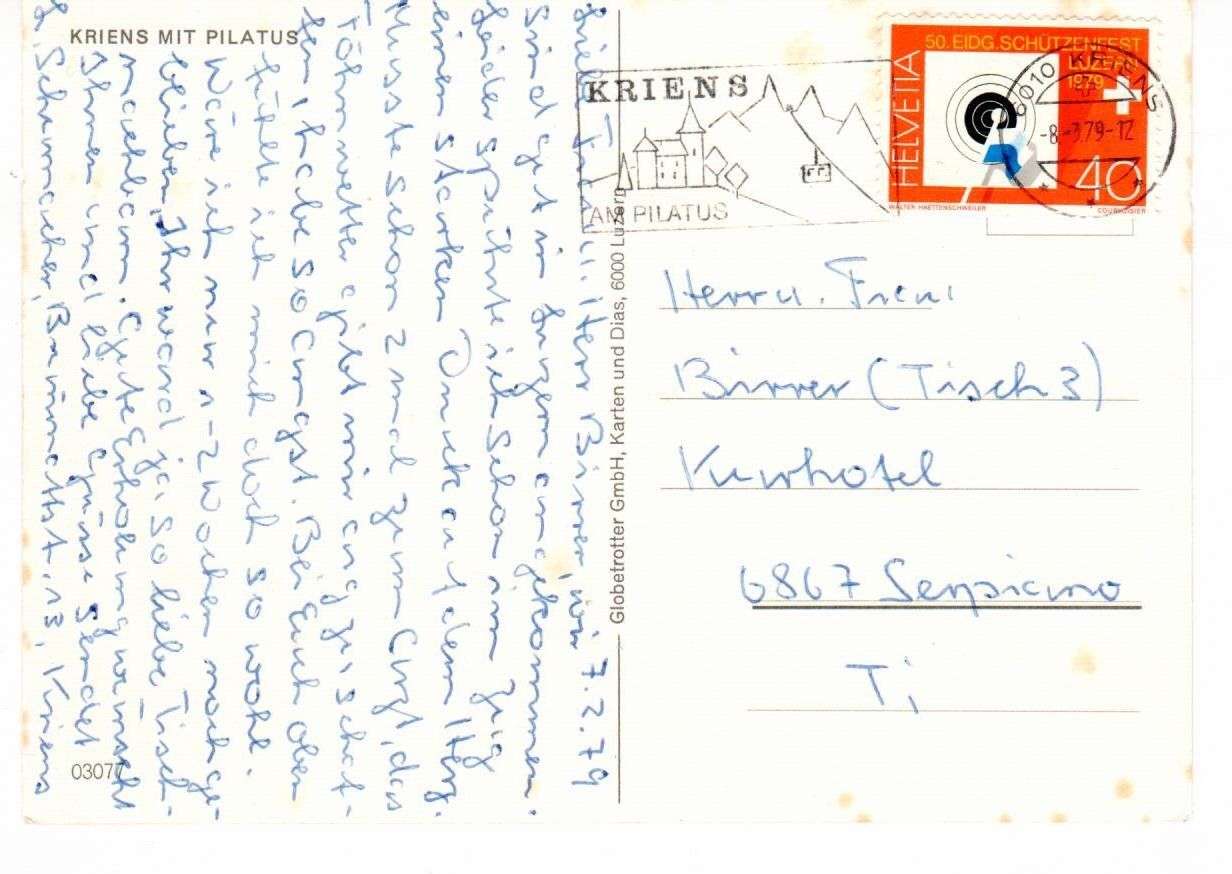 KRIENS MIT PILATUS
Liebe Frau u. Herr Birrer, wir 7.2.79
Sind gut in Luzern angekommen.
Leider spürte ich schon im Zug
einen starken Druck auf dem Herz.
Musste schon 2 mal zum Arzt, das
Föhnwetter gibt mir arg zu schaf-
fen, habe so Angst. Bei Euch oben
fühlte ich mich doch so wohl.
Wäre ich nur 1-2 Wochen noch ge-
blieben, Ihr ward ja so liebe Tisch-
nachbarn. Gute Erholung wünscht
Ihnen und liebe Grüsse sendet
Schumacher, 13, Kriens
03077
Globetrotter GmbH, Karten und Dias, 6000 Luzern
KRIENS
AM PILATUS
HELVETIA
50. EIDG. SCHÜTZENFEST
LUZERN
1979
40
WALTER HAETTENSCHWEILER
COURVOISIER
6010 KRIENS
-8.-3.79-12
Herrn. Frau
Birrer (Tisch 3)
Kurhotel
6867 Serpiano
Ti